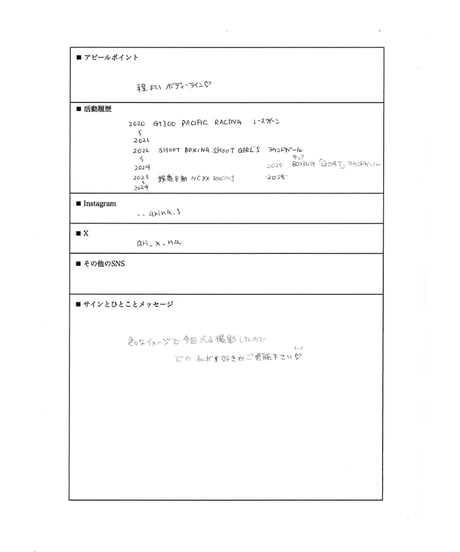 ■ アピールポイント
程よい ボディーライン♡
■ 活動履歴
2020 GT300 PACIFIC RACING レースクイーン
2021
2022 SHOOT BOXING SHOOT GIRL'S ラウンドガール
2024
2025 BOXING 「GOAT」ラウンドガール
2023 NCXX RACING 2025
2024
■ Instagram
■ X
ari_x_na
■ その他のSNS
■ サインとひとことメッセージ
色々なイメージで 今回 撮影したので
どの 私が 好きか ご 下さい♡